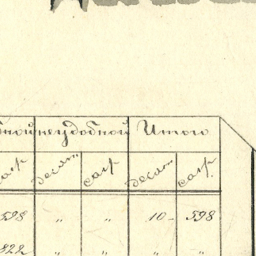 неудобной Итого
десят саж десят саж.
598 " " 10 - 598
822 " " " "